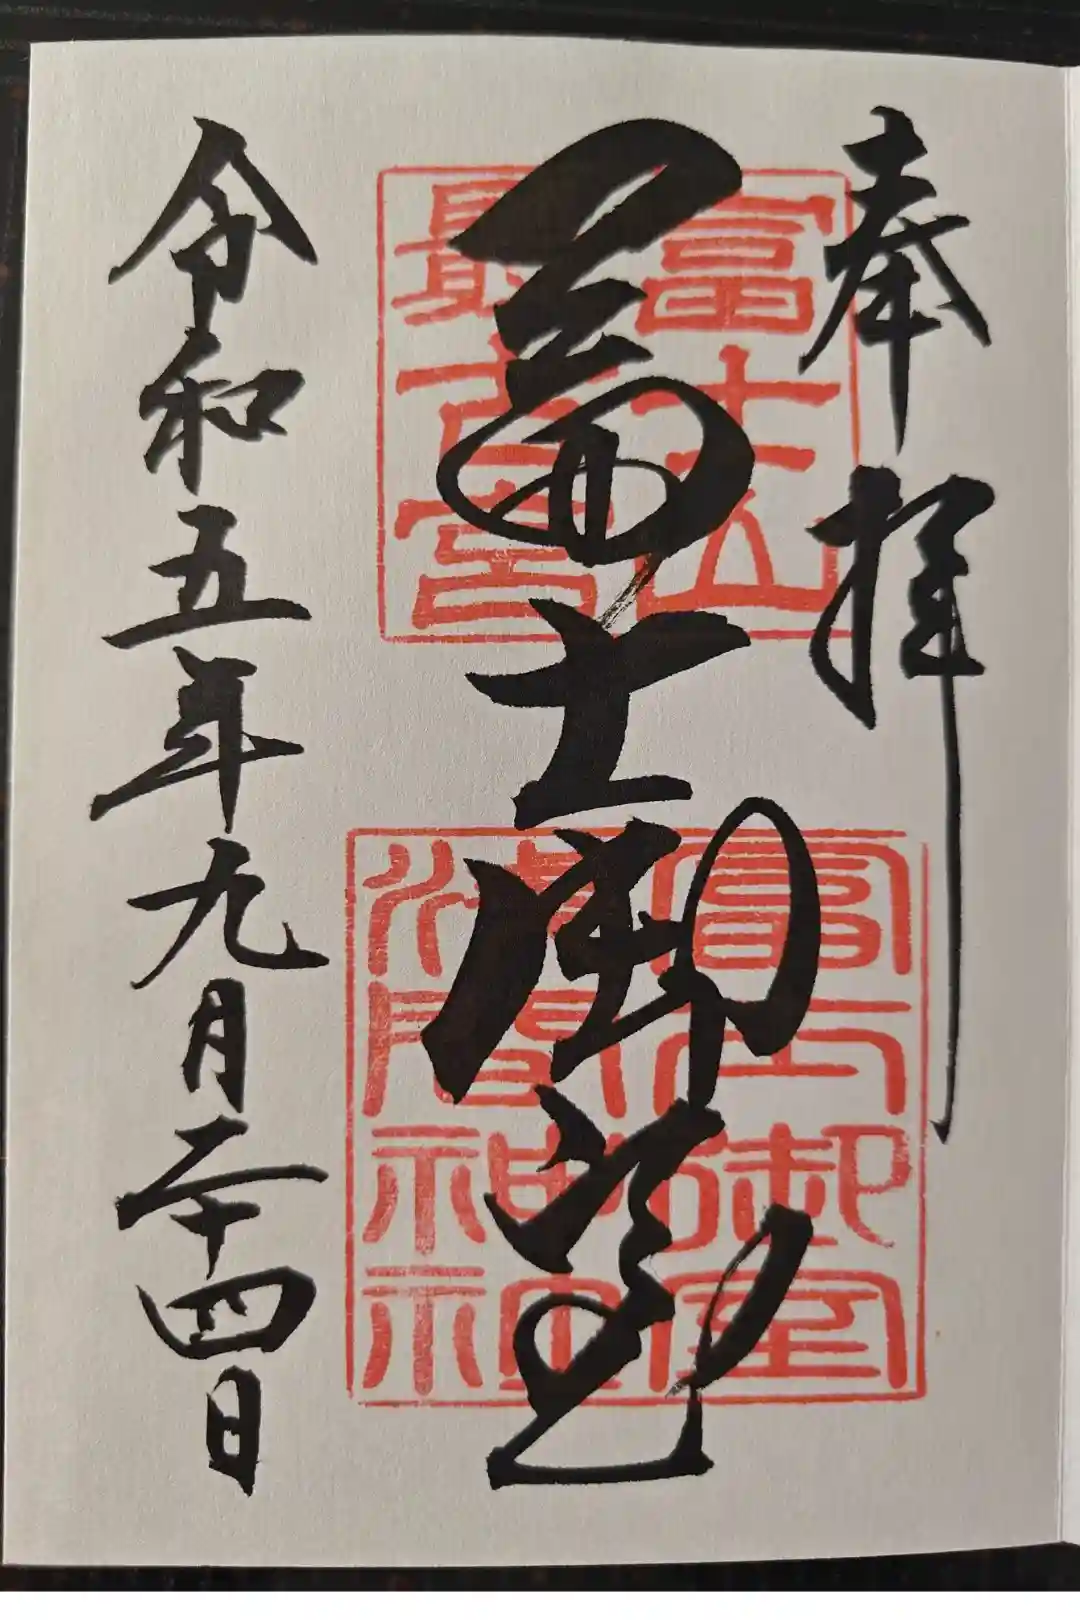 奉拝
富士山
最古宮
冨士御室
冨士御室
浅間神社
令和五年九月二十四日